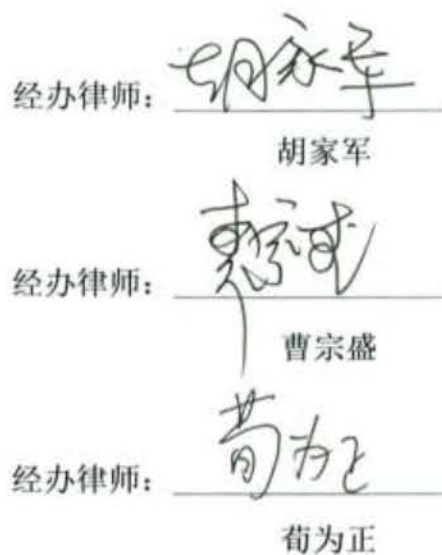 经办律师：胡家军
胡家军
经办律师：曹宗盛
曹宗盛
经办律师：荀为正
荀为正